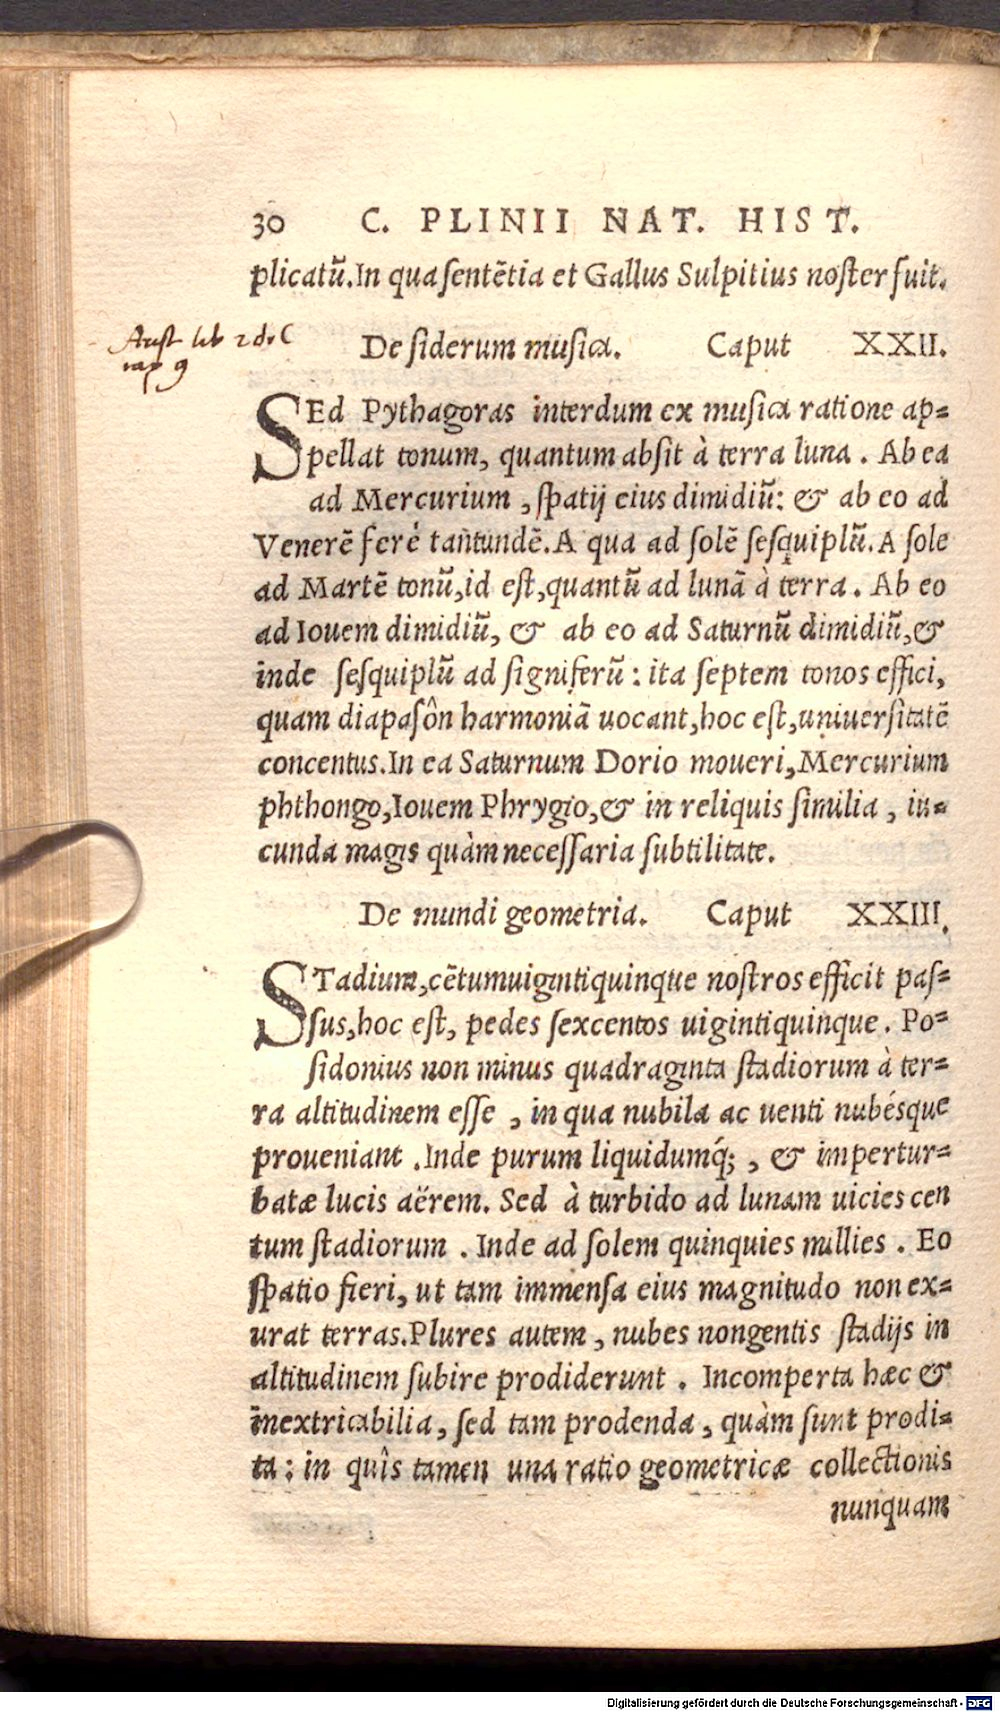 30 C. PLINII NAT. HIST.
plicatũ.In qua sentẽtia et Gallus Sulpitius noster fuit.
De siderum musica. Caput XXII.
lib 2 de C
cap 9
SEd Pythagoras interdum ex musica ratione ap-
pellat tonum, quantum absit à terra luna. Ab ea
ad Mercurium, spatij eius dimidiũ: & ab eo ad
Venerẽ feré tañtundẽ. A qua ad solẽ sesquiplũ. A sole
ad Martẽ tonũ, id est, quantũ ad lunã à terra. Ab eo
ad Iouem dimidiũ, & ab eo ad Saturnũ dimidiũ, &
inde sesquiplũ ad signiferũ: ita septem tonos effici,
quam diapasôn harmoniã uocant, hoc est, uniuersitatẽ
concentus. In ea Saturnum Dorio moueri, Mercurium
phthongo, Iouem Phrygio, & in reliquis similia, iu-
cunda magis quàm necessaria subtilitate.
De mundi geometria. Caput XXIII.
STadium, cẽtumuigintiquinque nostros efficit pas-
sus, hoc est, pedes sexcentos uigintiquinque. Po-
sidonius non minus quadraginta stadiorum à ter-
ra altitudinem esse, in qua nubila ac uenti nubésque
proueniant. Inde purum liquidumq́;, & impertur-
batæ lucis aërem. Sed à turbido ad lunam uicies cen
tum stadiorum. Inde ad solem quinquies millies. Eo
spatio fieri, ut tam immensa eius magnitudo non ex-
urat terras. Plures autem, nubes nongentis stadijs in
altitudinem subire prodiderunt. Incomperta hæc &
inextricabilia, sed tam prodenda, quàm sunt prodi-
ta: in quîs tamen una ratio geometricæ collectionis
nunquam
Digitalisierung gefördert durch die Deutsche Forschungsgemeinschaft - DFG